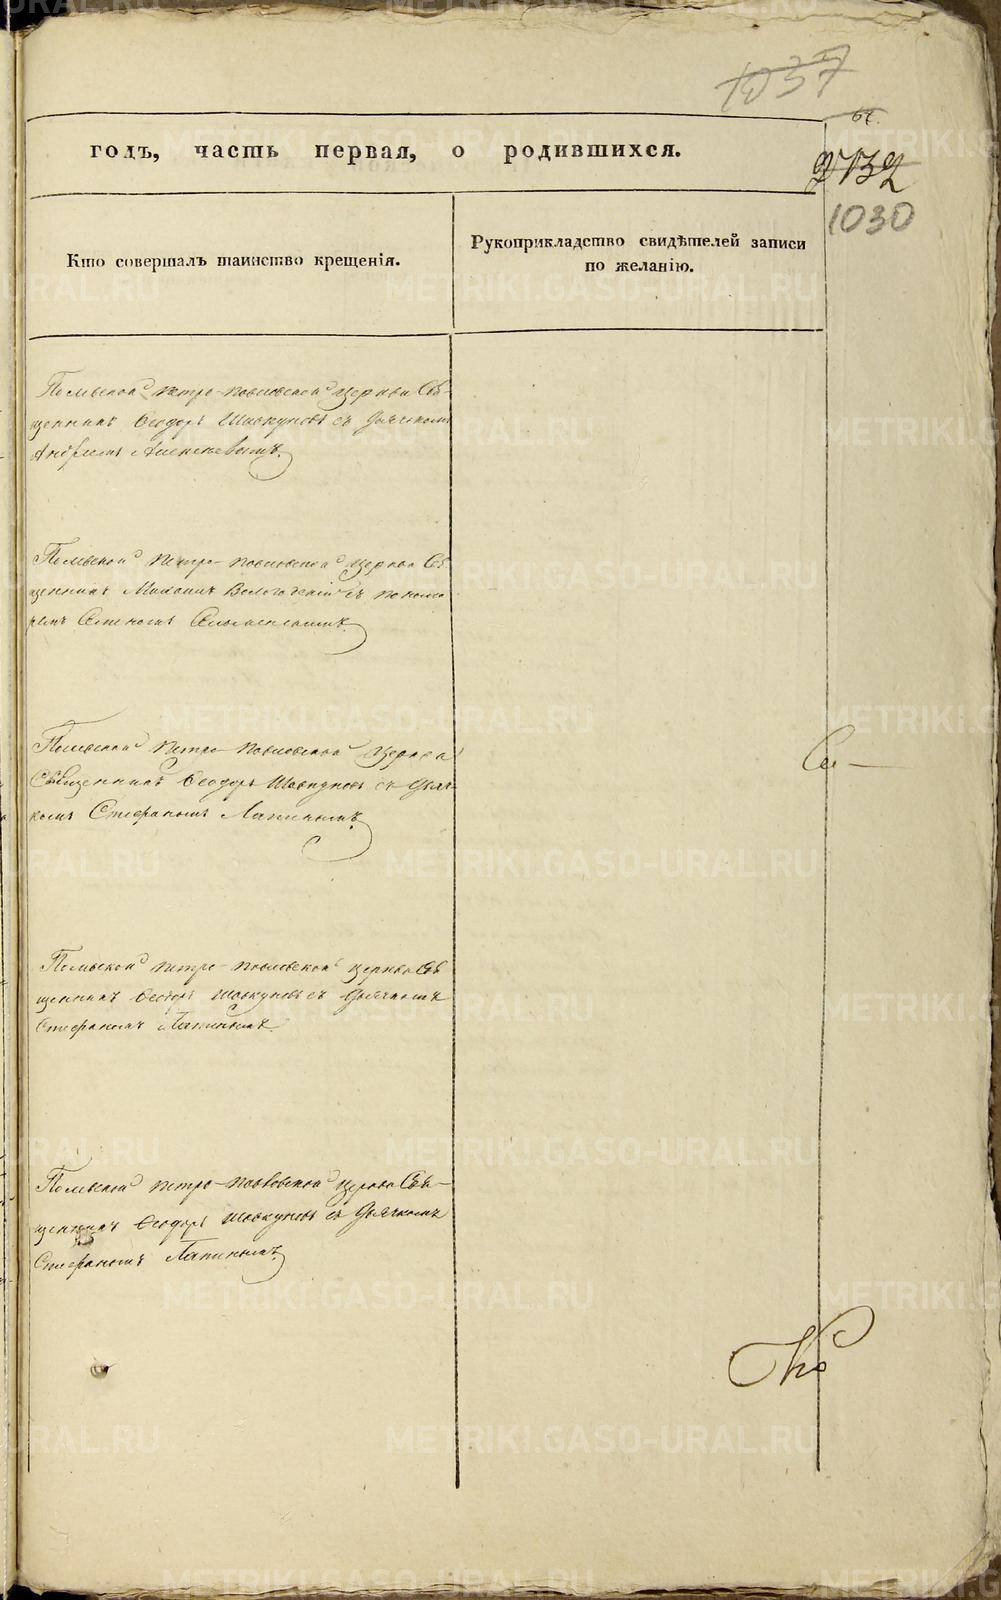 1037
67.
годъ, часть первая, о родившихся.
2732
1030
Кто совершалъ таинство крещенія.
Рукоприкладство свидѣтелей записи
по желанію.
Полевской Петро-Павловской церкви Свя-
щенникъ Ѳеодоръ Шавкуновъ съ Дьячкомъ
Андреемъ
Полевской Петро-Павловской церкви Свя
щенникъ Михаилъ Вологодскій съ понома
ремъ
Полевской Петро-Павловской церкви
Священникъ Ѳеодоръ Шавкуновъ съ Дьяч
комъ Стефаномъ Лапинымъ.
Си-
Полевской Петро-Павловской церкви Свя
щенникъ Ѳеодоръ Шавкуновъ съ Дьячкомъ
Стефаномъ Лапинымъ.
Полевской Петро-Павловской церкви Свя-
щенникъ Ѳеодоръ Шавкуновъ съ Дьячкомъ
Стефаномъ Лапинымъ.
METRIKI.GASO-URAL.RU